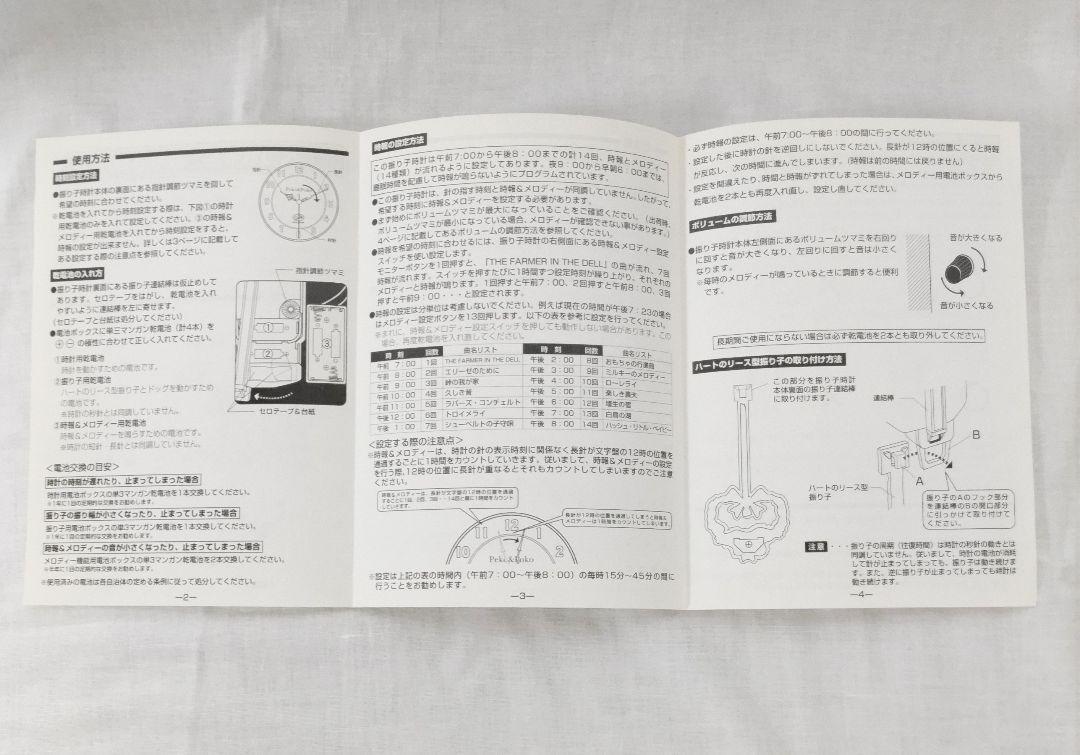 使用方法
時刻設定方法
●振り子時計本体の裏面にある指針調節ツマミを回して
希望の時刻に合わせてください。
※乾電池を入れてから時刻設定する際は、下図①の時計
用乾電池のみを入れて設定してください。③の時報&
メロディー用乾電池を入れてから時刻設定をすると、
時報の設定が出来ません。詳しくは3ページに記載して
ある設定する際の注意点を参照してください。
乾電池の入れ方
●振り子時計裏面にある振り子連結棒は仮止めして
あります。セロテープをはがし、乾電池を入れ
やすいように連結棒を左に寄せます。
(セロテープと台紙は処分してください)
●電池ボックスに単三マンガン乾電池(計4本)を
⊕⊖の極性に合わせて正しく入れてください。
①時計用乾電池
時計を動かすための電池です。
②振り子用乾電池
ハートのリース型振り子とドッグを動かすため
の電池です。
※時計の秒針とは同調していません。
③時報&メロディー用乾電池
時報&メロディーを鳴らすための電池です。
※時計の短針・長針とは同調していません。
指針調節ツマミ
①
②
③
セロテープ&台紙
<電池交換の目安>
時計の時刻が遅れたり、止まってしまった場合
時計用電池ボックスの単3マンガン乾電池を1本交換してください。
※1年に1回の定期的な交換をお勧めします。
振り子の振り幅が小さくなったり、止まってしまった場合
振り子用電池ボックスの単3マンガン乾電池を1本交換してください。
※1年に1回の定期的な交換をお勧めします。
時報&メロディーの音が小さくなったり、止まってしまった場合
メロディー機能用電池ボックスの単3マンガン乾電池を2本交換してください。
※使用済みの電池は各自治体の定める条例に従って処分してください。
—2—
時報の設定方法
この振り子時計は午前7:00から午後8:00までの計14回、時報とメロディー
(14種類)が流れるように設定してあります。夜9:00から早朝6:00までは、
睡眠時間を配慮して時報が鳴らないようにプログラムされています。
●この振り子時計は、針の指す時刻と時報&メロディーが同調していません。したがって、
希望する時刻に時報&メロディーを設定する必要があります。
●まず始めにボリュームツマミが最大になっていることをご確認ください。(出荷時、
ボリュームツマミが最小になっている場合、メロディーが確認できない事があります。)
4ページに記載してあるボリュームの調節方法を参照してください。
●時報を希望の時刻に合わせるには、振り子時計の右側面にある時報&メロディー設定
スイッチを使い設定します。
モニターボタンを1回押すと、「THE FARMER IN THE DELL」の曲が流れ、7回
時報が流れます。スイッチを押すたびに1時間ずつ設定時刻が繰り上がり、それぞれの
メロディーと時報が鳴ります。1回押すと午前7:00、2回押すと午前8:00、3回
押すと午前9:00・・・と設定されます。
●時報の設定は分単位は考慮しないでください。例えば現在の時間が午後7:23の場合
はメロディー設定ボタンを13回押します。以下の表を参考に設定を行ってください。
※まれに、時報&メロディー設定スイッチを押しても動作しない場合があります。この
場合、再度乾電池を入れ直してください。
時 刻 回数 曲名リスト 時 刻 回数 曲名リスト
午前 7:00 1回 THE FARMER IN THE DELL 午後 2:00 8回 おもちゃの行進曲
午前 8:00 2回 エリーゼのために 午後 3:00 9回 ミルキーのメロディー
午前 9:00 3回 峠の我が家 午後 4:00 10回 ローレライ
午前10:00 4回 久しき昔 午後 5:00 11回 楽しき農夫
午前11:00 5回 ラバーズ・コンチェルト 午後 6:00 12回 埴生の宿
午後12:00 6回 トロイメライ 午後 7:00 13回 白鳥の湖
午後 1:00 7回 シューベルトの子守唄 午後 8:00 14回 ハッシュ・リトル・ベイビー
<設定する際の注意点>
※時報&メロディーは、時計の針の表示時刻に関係なく長針が文字盤の12時の位置を
通過するごとに1時間をカウントしていきます。従いまして、時報&メロディーの設定
を行う際、12時の位置に長針が重なるとそれもカウントしてしまいますのでご注意
ください。
時報&メロディーは、長針が12時の位置を通過
するごとに1回、2回、3回・・14回と順に1時間をカウント
していきます。
長針が12時の位置を通過してしまうと時報&
メロディーは1時間をカウントしてしまいます。
10 11 12 1 2
Peko&Poko
※設定は上記の表の時間内(午前7:00〜午後8:00)の毎時15分〜45分の間に
行うことをお勧めします。
—3—
・必ず時報の設定は、午前7:00〜午後8:00の間に行ってください。
・設定した後に時計の針を逆回しにしないでください。長針が12時の位置にくると時報
が反応し、次の時間に進んでしまいます。(時報は前の時間には戻りません)
・設定を間違えたり、時間と時報がずれてしまった場合は、メロディー用電池ボックスから
乾電池を2本とも再度入れ直し、設定し直してください。
ボリュームの調節方法
●振り子時計本体左側面にあるボリュームツマミを右回り
に回すと音が大きくなり、左回りに回すと音は小さく
なります。
※毎時のメロディーが鳴っているときに調節すると便利
です。
音が大きくなる
音が小さくなる
長期間ご使用にならない場合は必ず乾電池を2本とも取り外してください。
ハートのリース型振り子の取り付け方法
この部分を振り子時計
本体裏面の振り子連結棒
に取り付けます。
連結棒
B
A
ハートのリース型
振り子
振り子のAのフック部分
を連結棒のBの開口部分
に引っかけて取り付けて
ください。
注意・・・振り子の周期(往復時間)は時計の秒針の動きとは
同調していません。従いまして、時計の電池が消耗
して針が止まってしまっても、振り子は動き続けま
す。また、逆に振り子が止まってしまっても時計は
動き続けます。
—4—